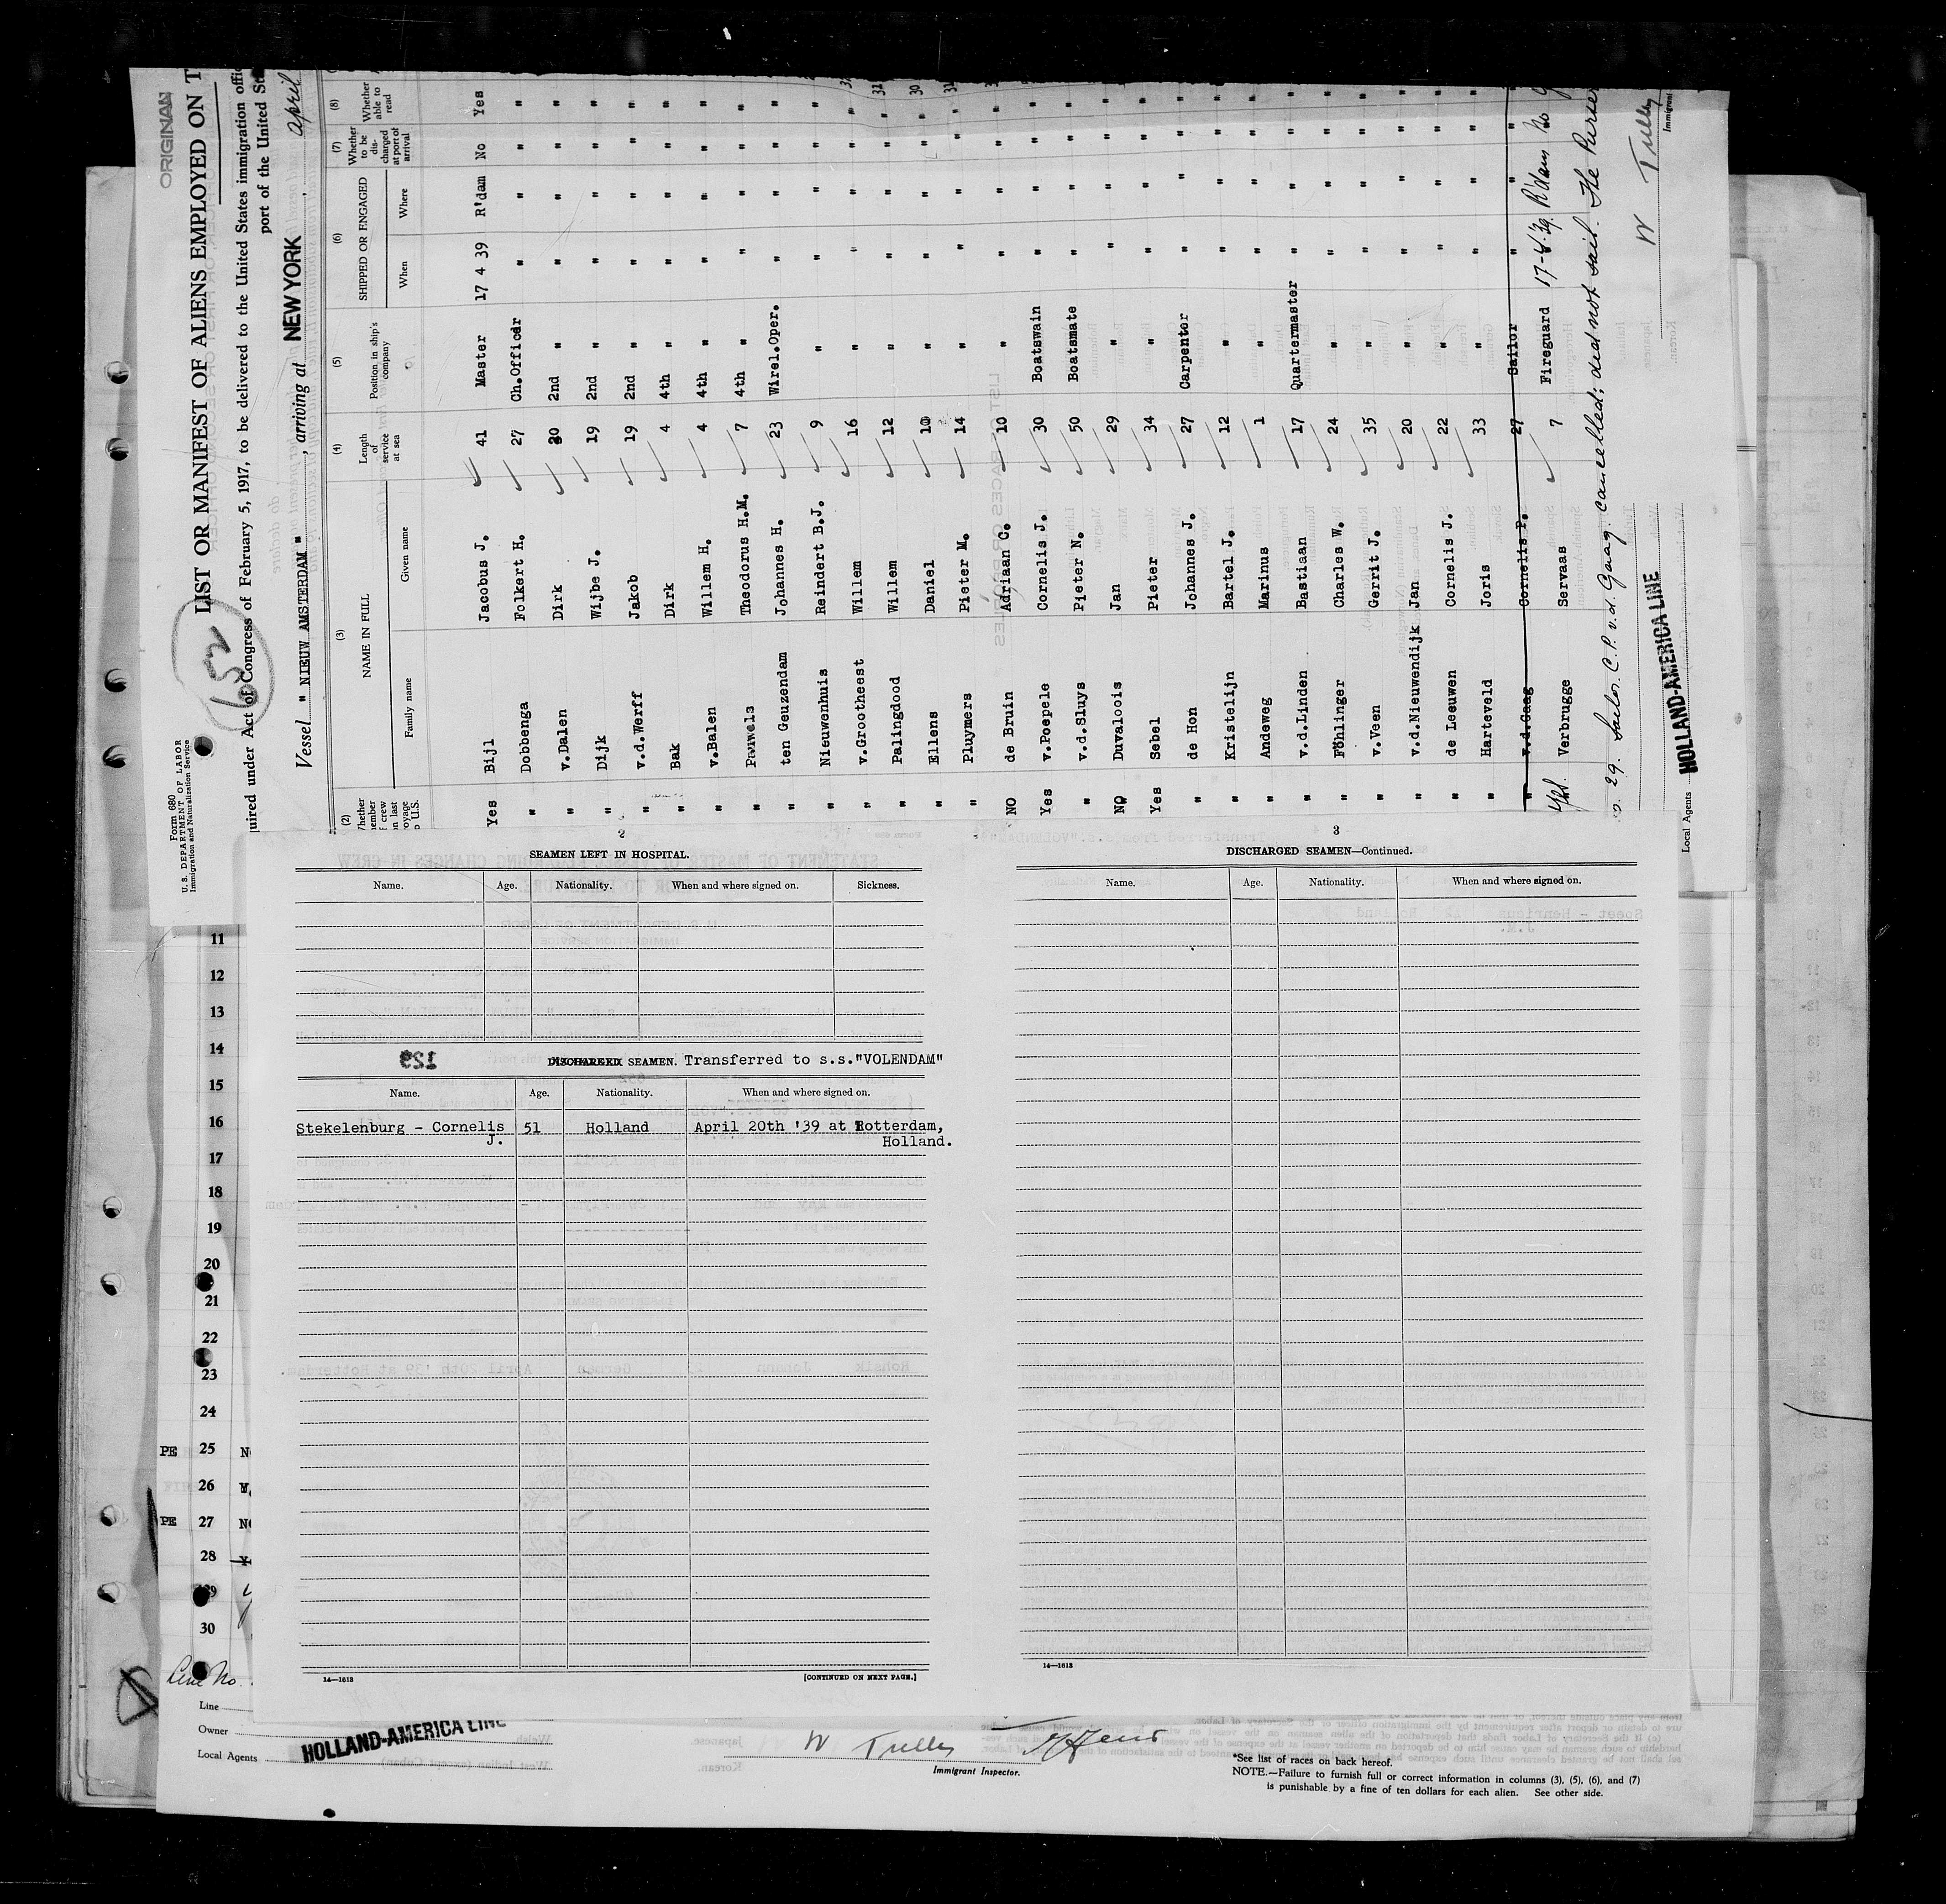 ORIGINAL
Form 680
U. S. DEPARTMENT OF LABOR
Immigration and Naturalization Service
652
LIST OR MANIFEST OF ALIENS EMPLOYED ON T
quired under Act of Congress of February 5, 1917, to be delivered to the United States immigration
port of the United
Vessel " NIEUW AMSTERDAM " , arriving at NEW YORK , April
(2) (3) (4) (5) (6) (7) (8)
NAME IN FULL
Family name Given name
Length of service at sea
Position in ship's company
SHIPPED OR ENGAGED
When Where
Whether to be discharged at port of arrival
Whether able to read
Yes Bijl Jacobus J. 41 Master 17 4 39 R'dam No Yes
" Dobbenga Folkert H. 27 Ch.Officer " " " "
" v.Dalen Dirk 20 2nd " " " " "
" Dijk Wijbe J. 19 2nd " " " " "
" v.d.Werff Jakob 19 2nd " " " " "
" Bak Dirk 4 4th " " " " "
" v.Balen Willem H. 4 4th " " " " "
" Pauwels Theodorus H.M. 7 4th " " " " "
" ten Geuzendam Johannes H. 23 Wirel.Oper. " " " "
" Nieuwenhuis Reindert B.J. 9 " " " " "
" v.Grootheest Willem 16 " " " " "
" Palingdood Willem 12 " " " " "
" Ellens Daniel 10 " " " " "
" Pluymers Pieter M. 14 " " " " "
NO de Bruin Adriaan C. 10 " " " " "
Yes v.Poepele Cornelis J. 30 Boatswain " " " "
" v.d.Sluys Pieter N. 50 Boatsmate " " " "
NO Duvaloois Jan 29 " " " " "
Yes Sebel Pieter 34 " " " " "
" de Hon Johannes J. 27 Carpenter " " " "
" Kristelijn Bartel J. 12 " " " " "
" Andeweg Marinus 1 " " " " "
" v.d.Linden Bastiaan 17 Quartermaster " " " "
" Föhlinger Charles W. 24 " " " " "
" v.Veen Gerrit J. 35 " " " " "
" v.d.Nieuwendijk Jan 20 " " " " "
" de Leeuwen Cornelis J. 22 " " " " "
" Harteveld Joris 33 " " " " "
" v.d.Gaag Cornelis P. 27 Sailor " " " "
Yes Verbrugge Servaas 7 Fireguard 17-4-39 R'dam No
29. Sailor C. P. v.d. Gaag. cancelled; did not sail. The Purser
W Tulley
Immigrant
Local Agents HOLLAND-AMERICA LINE
2
SEAMEN LEFT IN HOSPITAL.
Name. Age. Nationality. When and where signed on. Sickness.
123
DISCHARGED SEAMEN. Transferred to s.s."VOLENDAM"
Name. Age. Nationality. When and where signed on.
Stekelenburg - Cornelis 51 Holland April 20th '39 at Rotterdam,
J. Holland.
14—1613 [CONTINUED ON NEXT PAGE.]
3
DISCHARGED SEAMEN—Continued.
Name. Age. Nationality. When and where signed on.
14—1613
11
12
13
14
15
16
17
18
19
20
21
22
23
24
PE 25
26
PE 27
28
29
30
Line No.
Line
Owner
Local Agents HOLLAND-AMERICA LINE
W Tulley
Immigrant Inspector.
*See list of races on back hereof.
NOTE.—Failure to furnish full or correct information in columns (3), (5), (6), and (7)
is punishable by a fine of ten dollars for each alien. See other side.